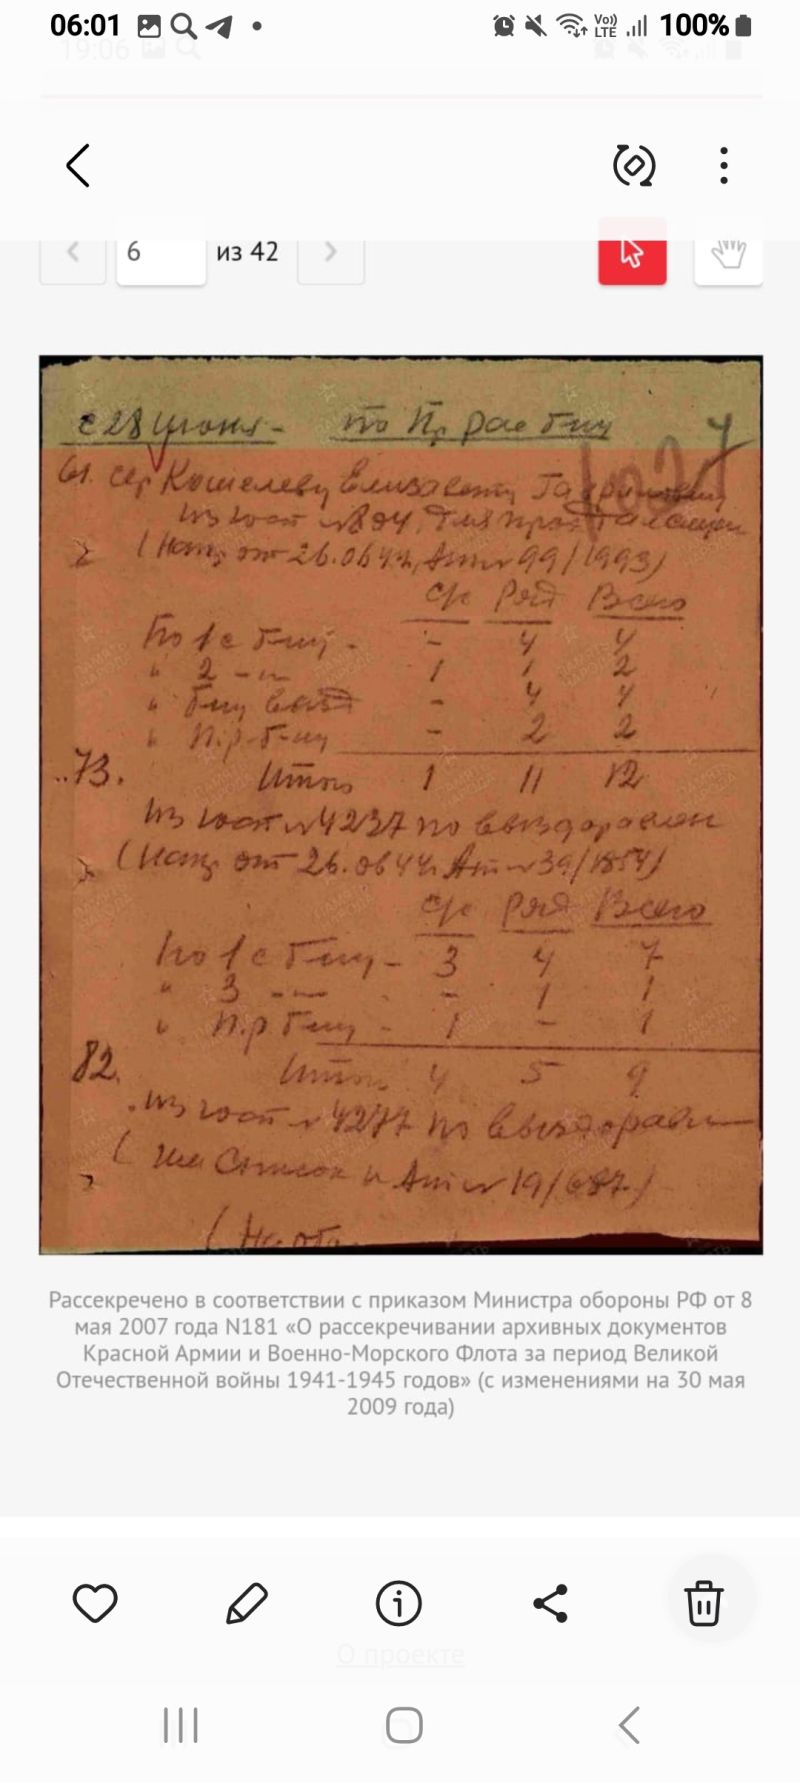 06:01
Vo)) LTE
100%
6 из 42
с 28 июня - по Пр рас бту
61. сер Кошелеву Елизавету
из госп №
(Напр от 26.06.44г, Ат № 99/1993)
с/с Ряд Всего
По 1с бту - - 4 4
" 2 -"- 1 1 2
" бту - 4 4
" п.р. бту - 2 2
73. Итого 1 11 12
из госп № 4237 по выздоровлен
(Напр от 26.06.44г Ат № 39/1854)
с/с Ряд Всего
По 1с бту - 3 4 7
" 3 -"- - 1 1
" п.р бту - 1 - 1
82. Итого 4 5 9
из госп № 4277 по выздоравл
( Им Список и Ат № 19/687)
(На об.
Рассекречено в соответствии с приказом Министра обороны РФ от 8
мая 2007 года N181 «О рассекречивании архивных документов
Красной Армии и Военно-Морского Флота за период Великой
Отечественной войны 1941-1945 годов» (с изменениями на 30 мая
2009 года)
О проекте